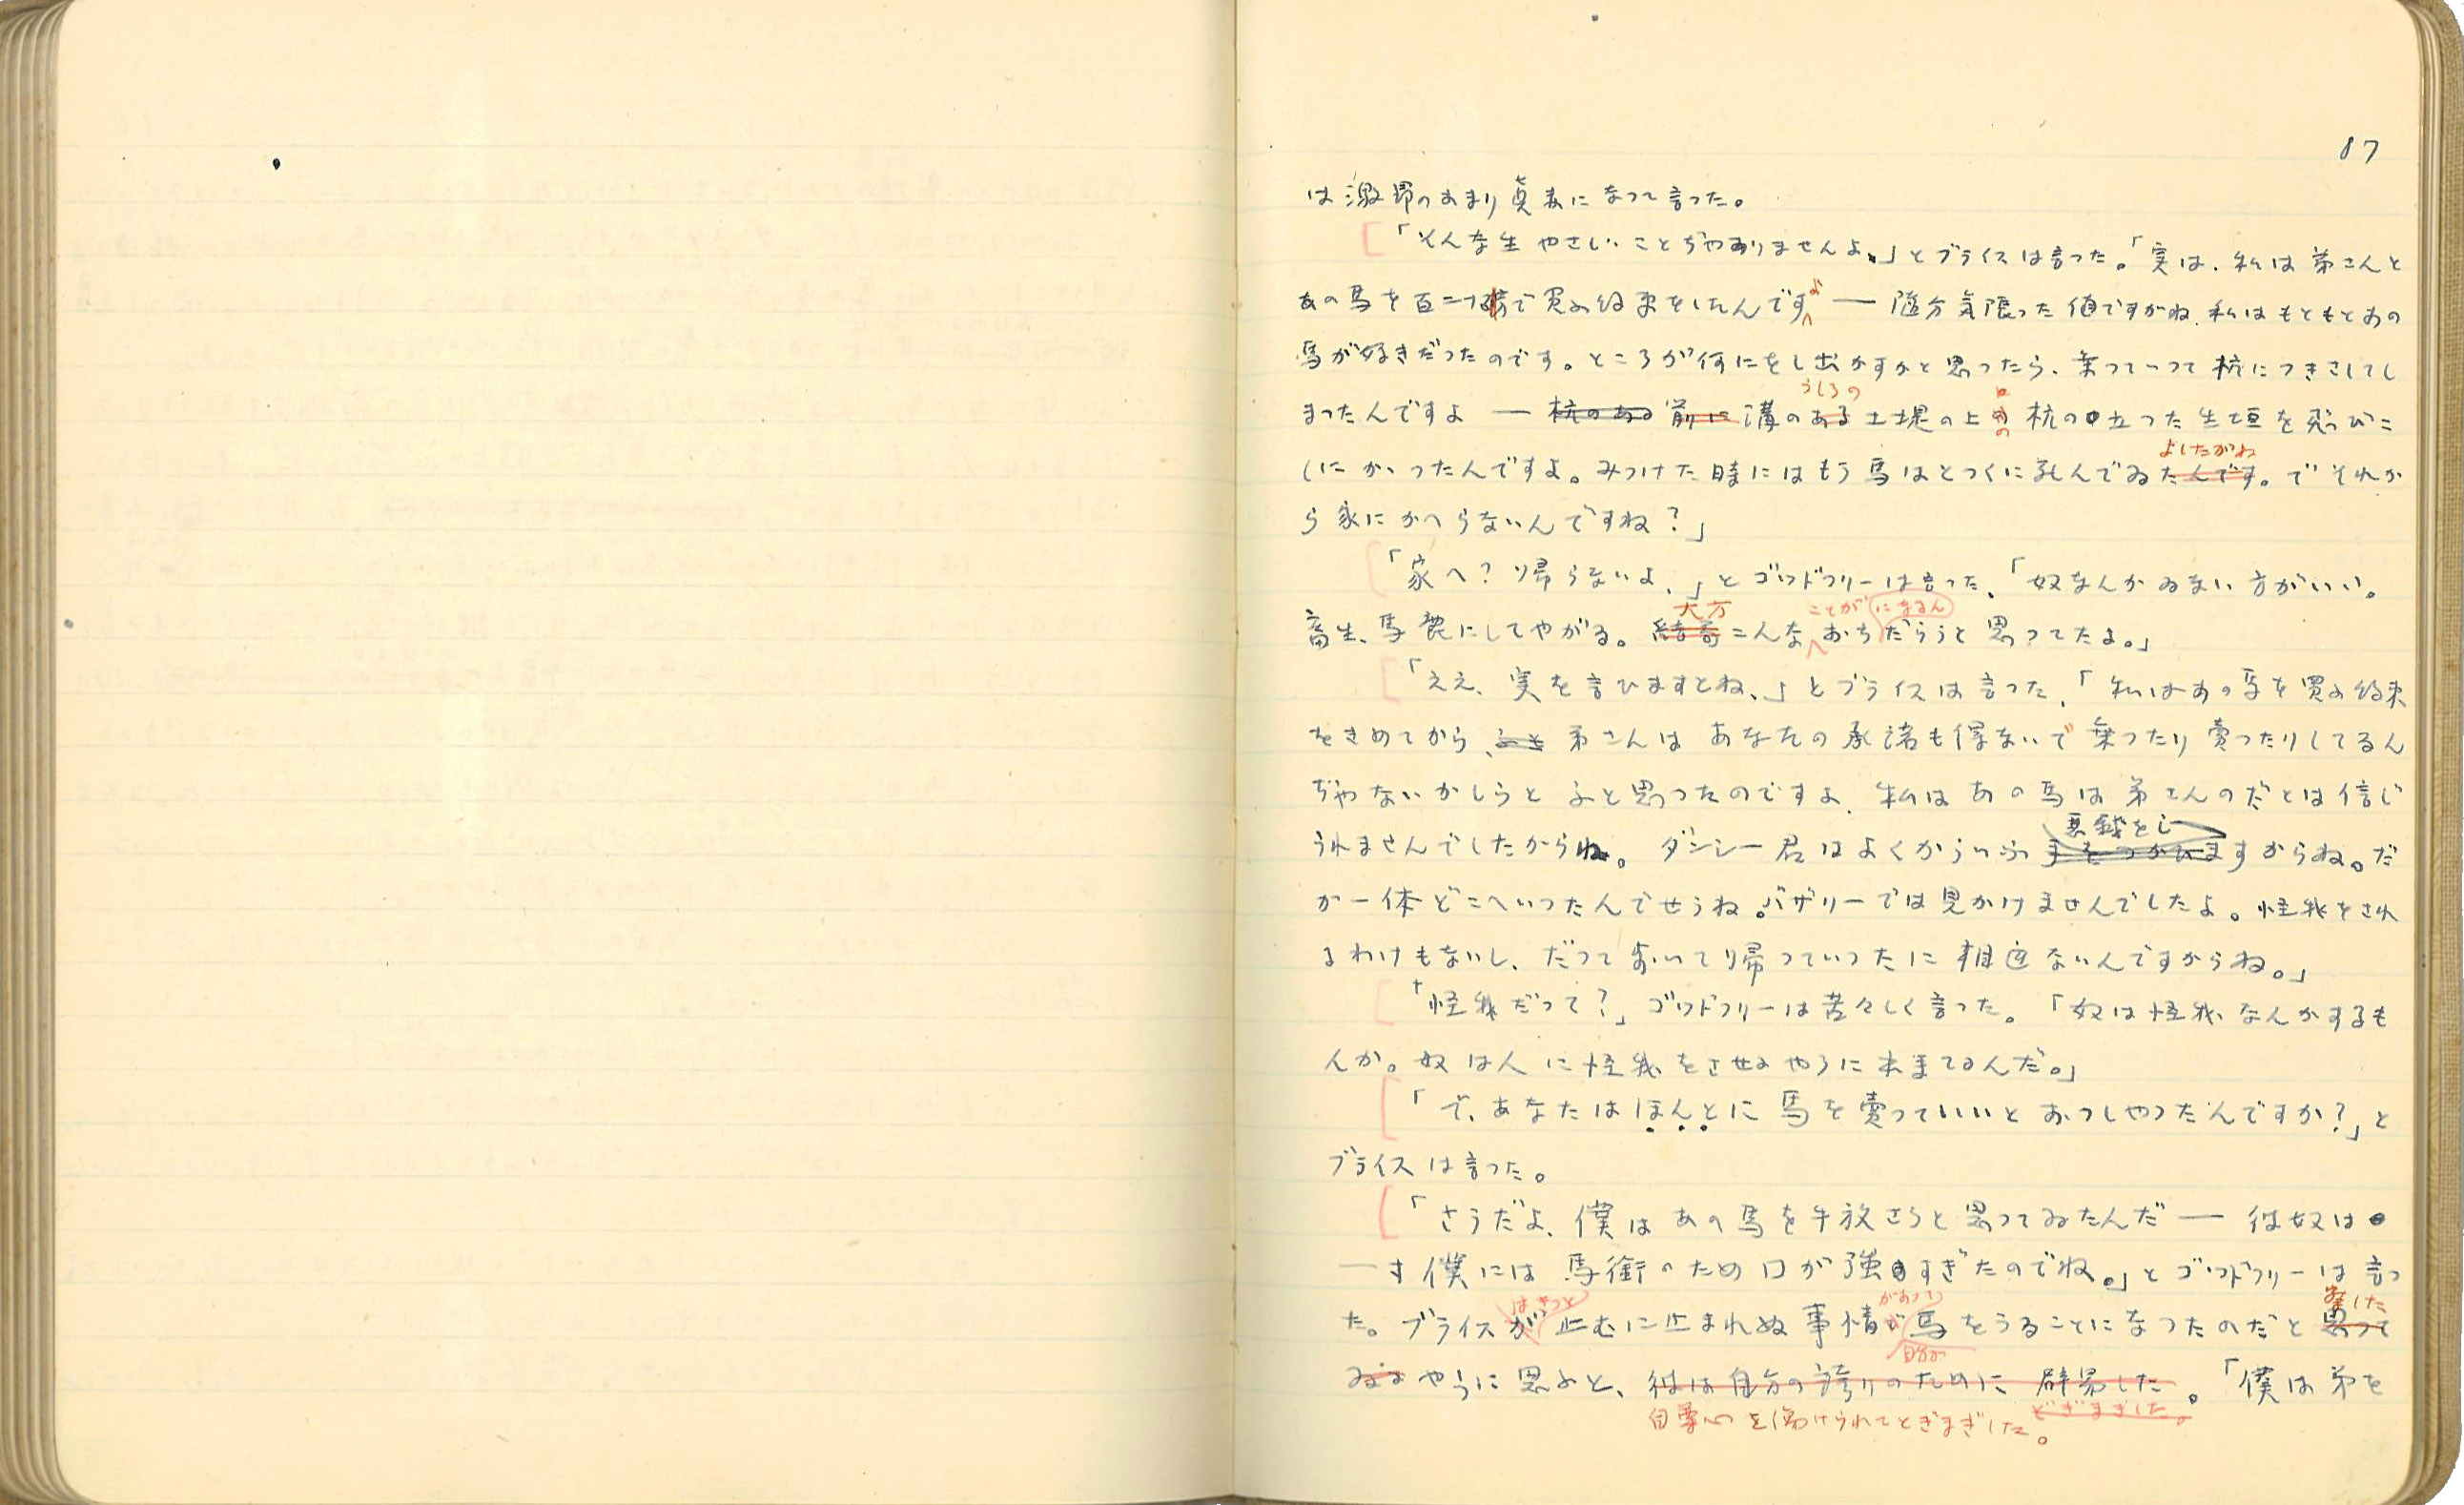 87
は激昂のあまり真赤になつて言つた。
「そんな生やさしいことぢやありませんよ。」とブライスは言つた。「実は、私は弟さんと
あの馬を百二十磅で買ふ約束をしたんですよ ― 随分気張つた値ですがね、私はもともとあの
馬が好きだつたのです。ところが何にをし出かすかと思つたら、乗つていつて杭につきさしてし
うしろの
まつたんですよ ― 杭のある 前に 溝のある土堤の上の 杭の立つた生垣を飛つびこ
よしたがね
しにかゝつたんですよ。みつけた時にはもう馬はとつくに死んでゐたんです。でそれか
ら家にかへらないんですね?」
「家へ? 帰らないよ、」とゴツドフリーは言つた、「奴なんかゐない方がいい。
大方 ことが になるん
畜生、馬鹿にしてやがる。結局こんなおちだらうと思つてたよ。」
「ええ、実を言ひますとね、」とブライスは言つた、「私はあの馬を買ふ約束
をきめてから、ふと 弟さんはあなたの承諾も得ないで乗つたり売つたりしてるん
ぢやないかしらとふと思つたのですよ、私はあの馬は弟さんのだとは信じ
悪戯をし
られませんでしたからね。ダンシー君はよくかういふ手をつかひますからね。だ
が一体どこへいつたんでせうね。バザリーでは見かけませんでしたよ。怪我をされ
るわけもないし、だつて歩いて帰つていつたに相違ないんですからね。」
「怪我だつて?」ゴツドフリーは苦々しく言つた。「奴は怪我なんかするも
んか。奴は人に怪我をさせるやうに出来てるんだ。」
「で、あなたはほんとに馬を売つていいとおつしやつたんですか?」と
ブライスは言つた。
「さうだよ、僕はあの馬を手放さうと思つてゐたんだ ― 彼奴は
一寸僕には馬銜のため口が強すぎたのでね。」とゴツドフリーは言つ
はきつと があつて 察した
た。ブライスが止むに止まれぬ事情で馬をうることになつたのだと思つて
自分が
ゐるやうに思ふと、彼は自分の誇りのために 辟易した。「僕は弟を
自尊心を傷けられてどぎまぎした。 どぎまぎした。